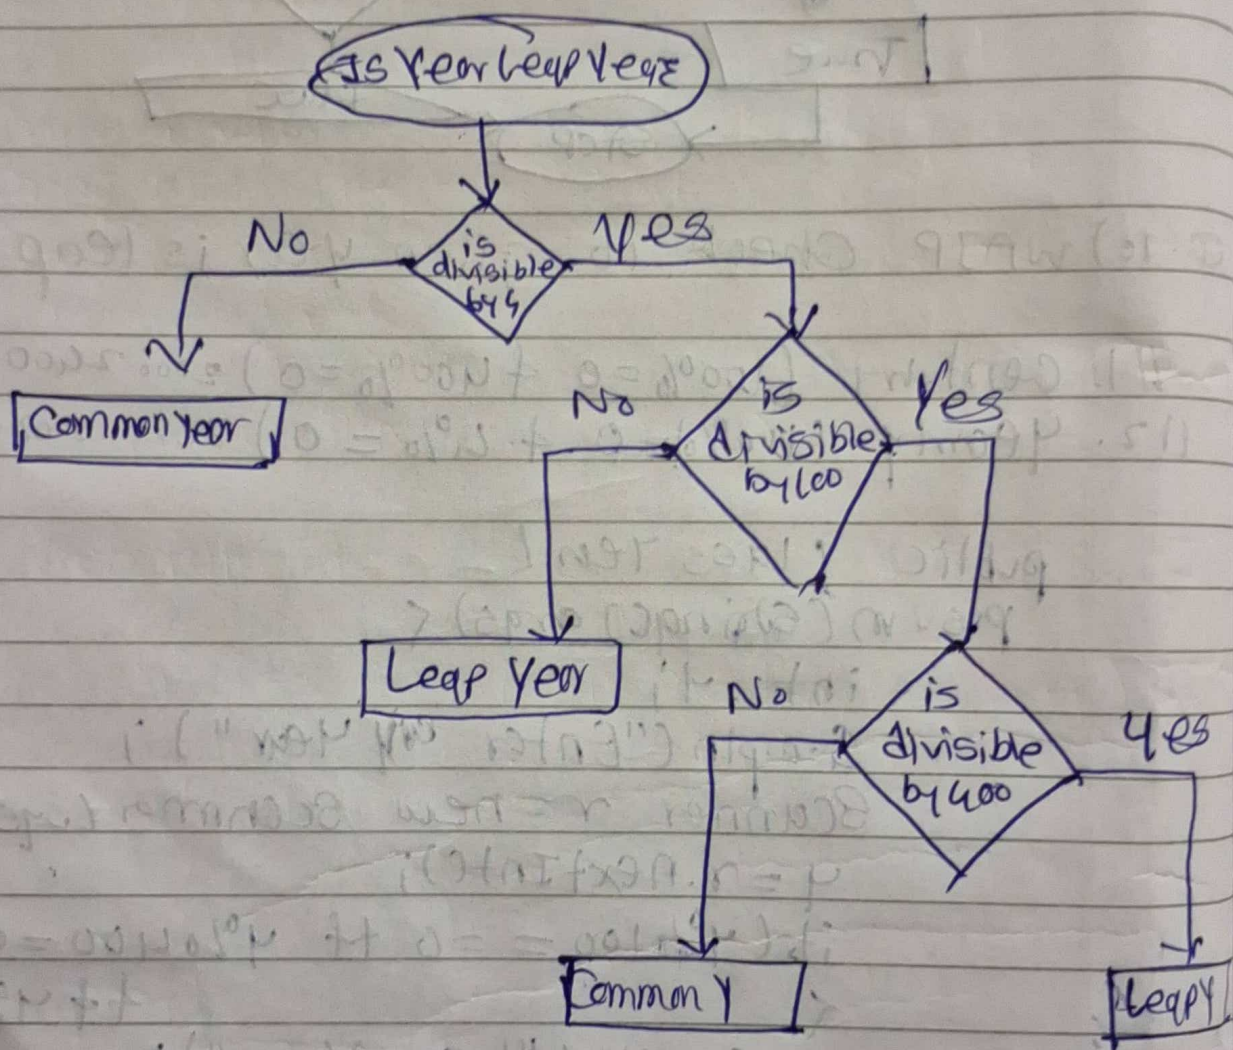 Is Year Leap Year
No
is
divisible
by 4
Yes
Common Year
No
is
divisible
by 100
Yes
Leap Year
No
is
divisible
by 400
Yes
Common Y
Leap Y